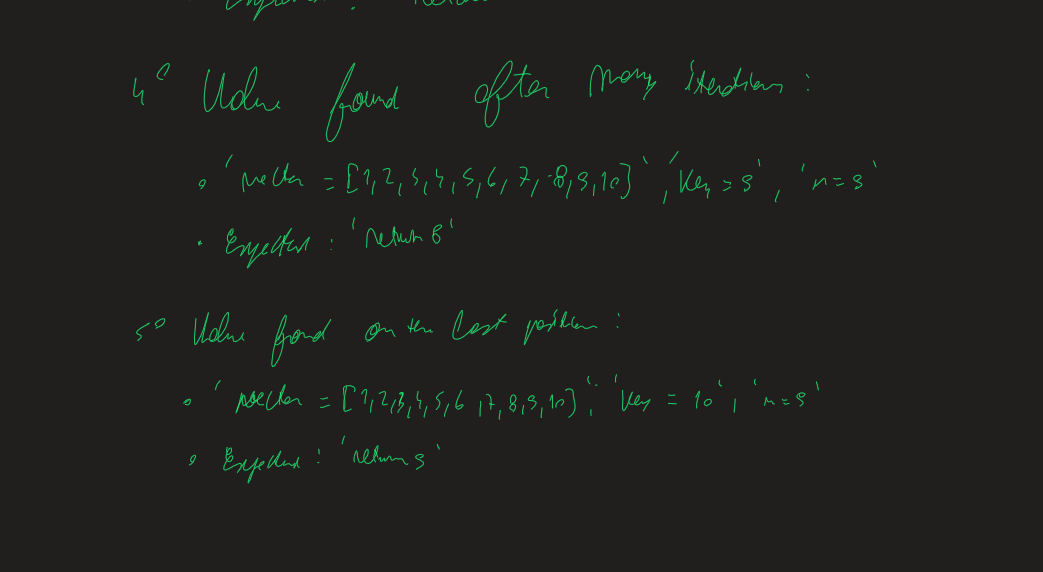 4º Value found after many iterations :
'vector = [1,2,3,4,5,6,7,8,9,10]' , 'key = 9' , 'n=9'
Expected : 'return 8'
5º Value found on the last position :
'vector = [1,2,3,4,5,6,7,8,9,10]' ; 'key = 10' , 'n=9'
Expected : 'return 9'